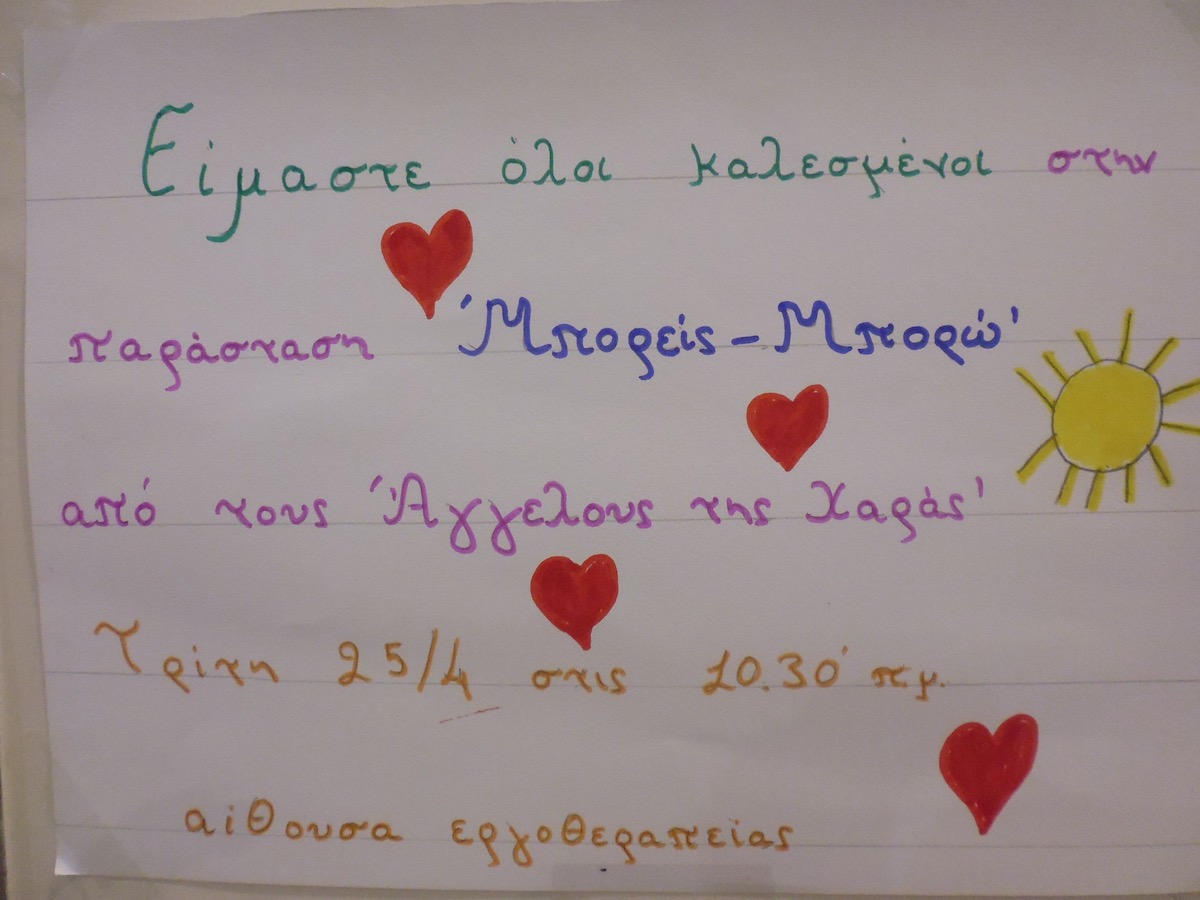 Είμαστε όλοι καλεσμένοι στην
παράσταση 'Μπορείς-Μπορώ'
από τους 'Άγγελους της Χαράς'
Τρίτη 25/4 στις 10.30' π.μ.
αίθουσα εργοθεραπείας